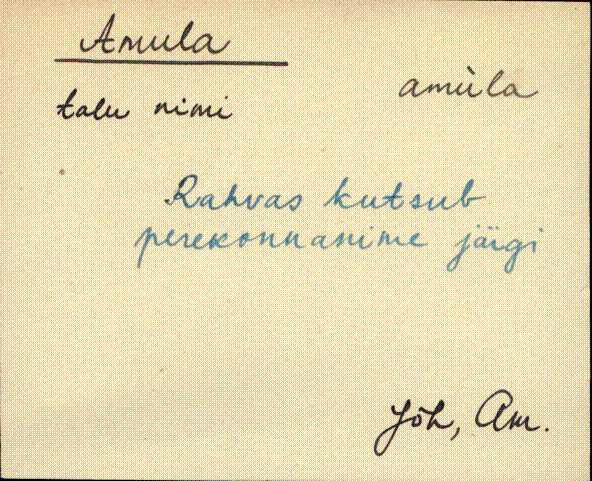 Amula
amùla
talu nimi
Rahvas kutsub
perekonnanime järgi
Jõh, Am.